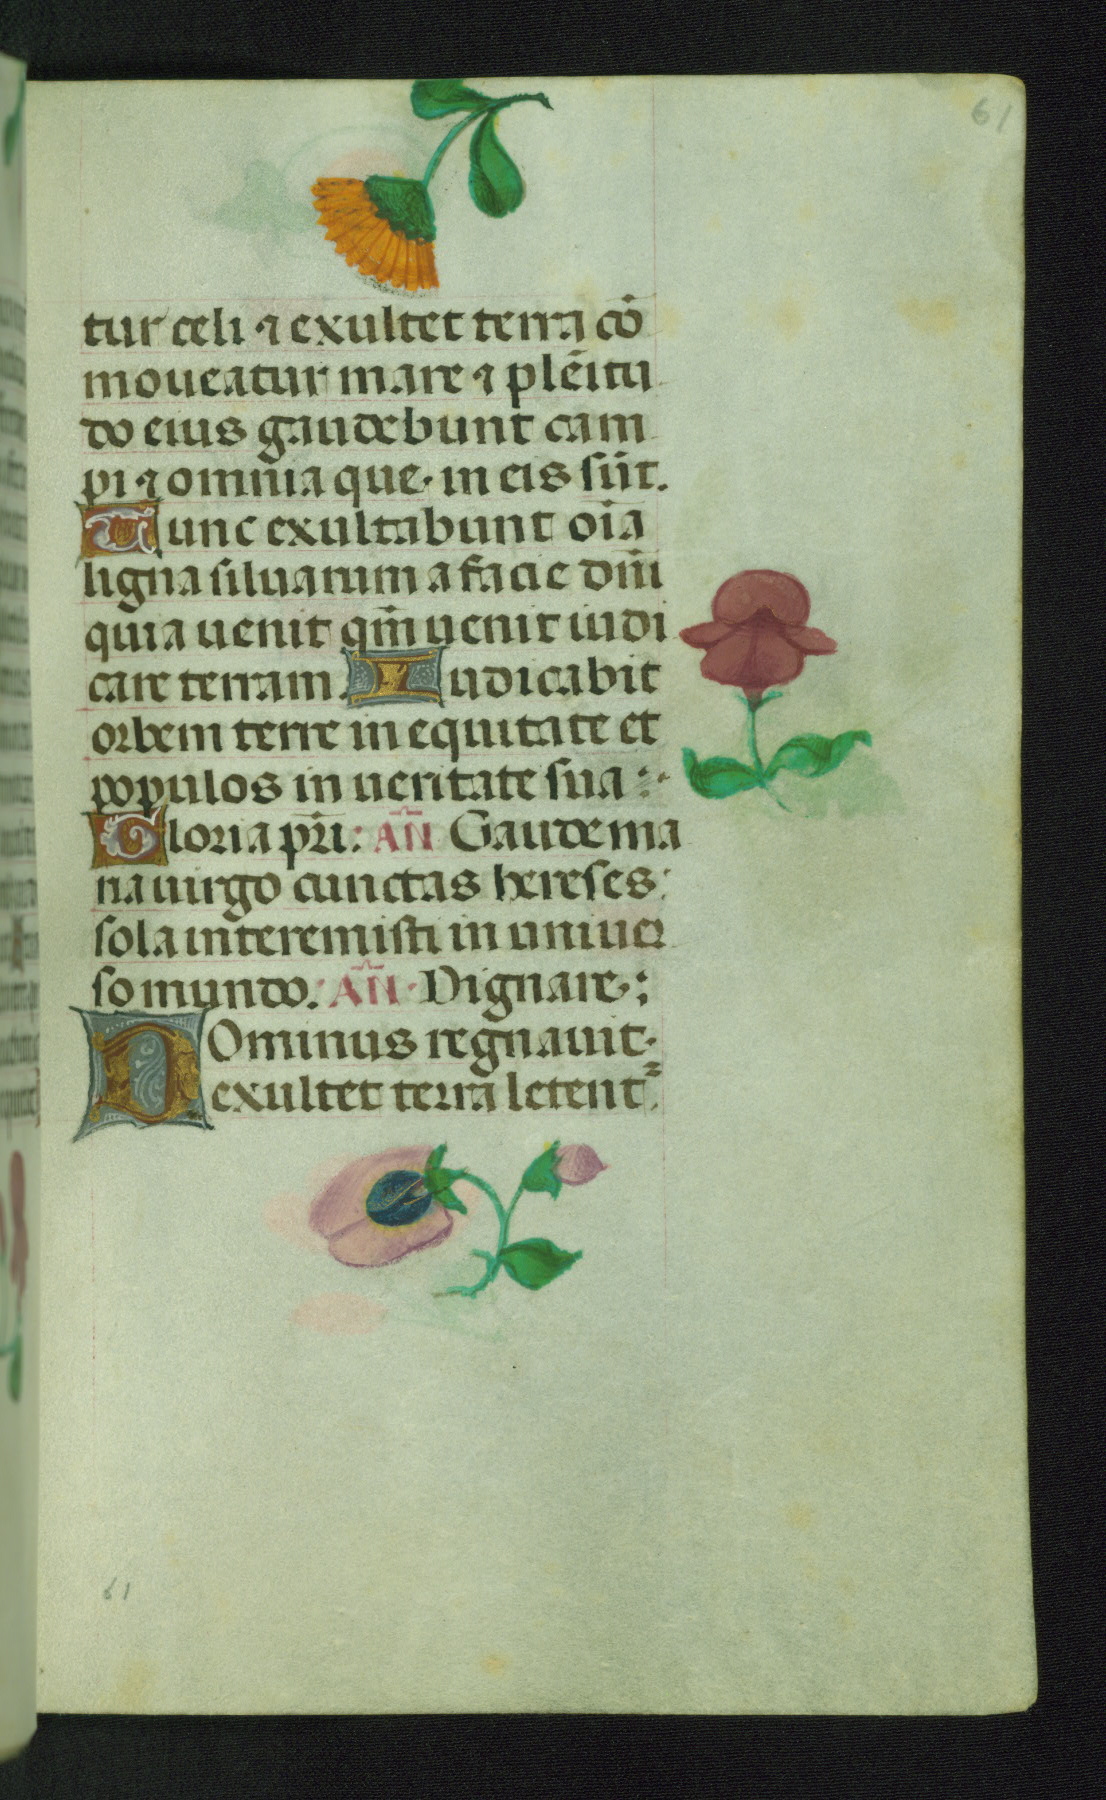 61
tur celi ⁊ exultet terra cō
moueatur mare ⁊ plēitu
do eius gaudebunt cam
pi ⁊ omnia que in eis sūt.
Tunc exultabunt oīa
ligna siluarum a facie dn̄i
quia uenit qm̄ uenit iudi
care terram. Iudicabit
orbem terre in equitate et
populos in ueritate sua :·
Gloria pr̄i: AN̄ Gaude ma
na uirgo cunctas hereses:
sola interemisti in uniuer
so mundo. AN̄· Dignare·:
Dominus regnauit·
exultet terra letent᷑.
61